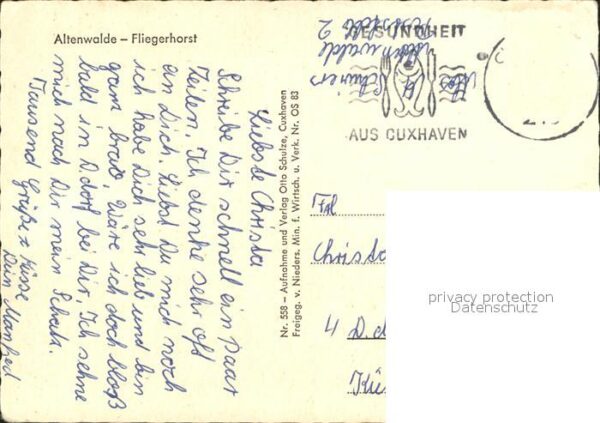 Altenwalde – Fliegerhorst
Liebste Christa
Schreibe Dir schnell ein paar
Zeilen. Ich denke sehr oft
an Dich. Liebst Du mich noch
ich habe Dich sehr lieb und bin
ganz brav, wäre ich doch bloß
bald in D.dorf bei Dir, Ich sehne
mich nach Dir mein Schatz.
Tausend Grüße + Küsse
Dein Manfred
Nr. 558 – Aufnahme und Verlag Otto Schulze, Cuxhaven
Freigeg. v. Nieders. Min. f. Wirtsch. u. Verk. Nr. OS 83
Altenwalde
GESUNDHEIT
AUS CUXHAVEN
Frl
Christa
4 D.d
privacy protection
Datenschutz